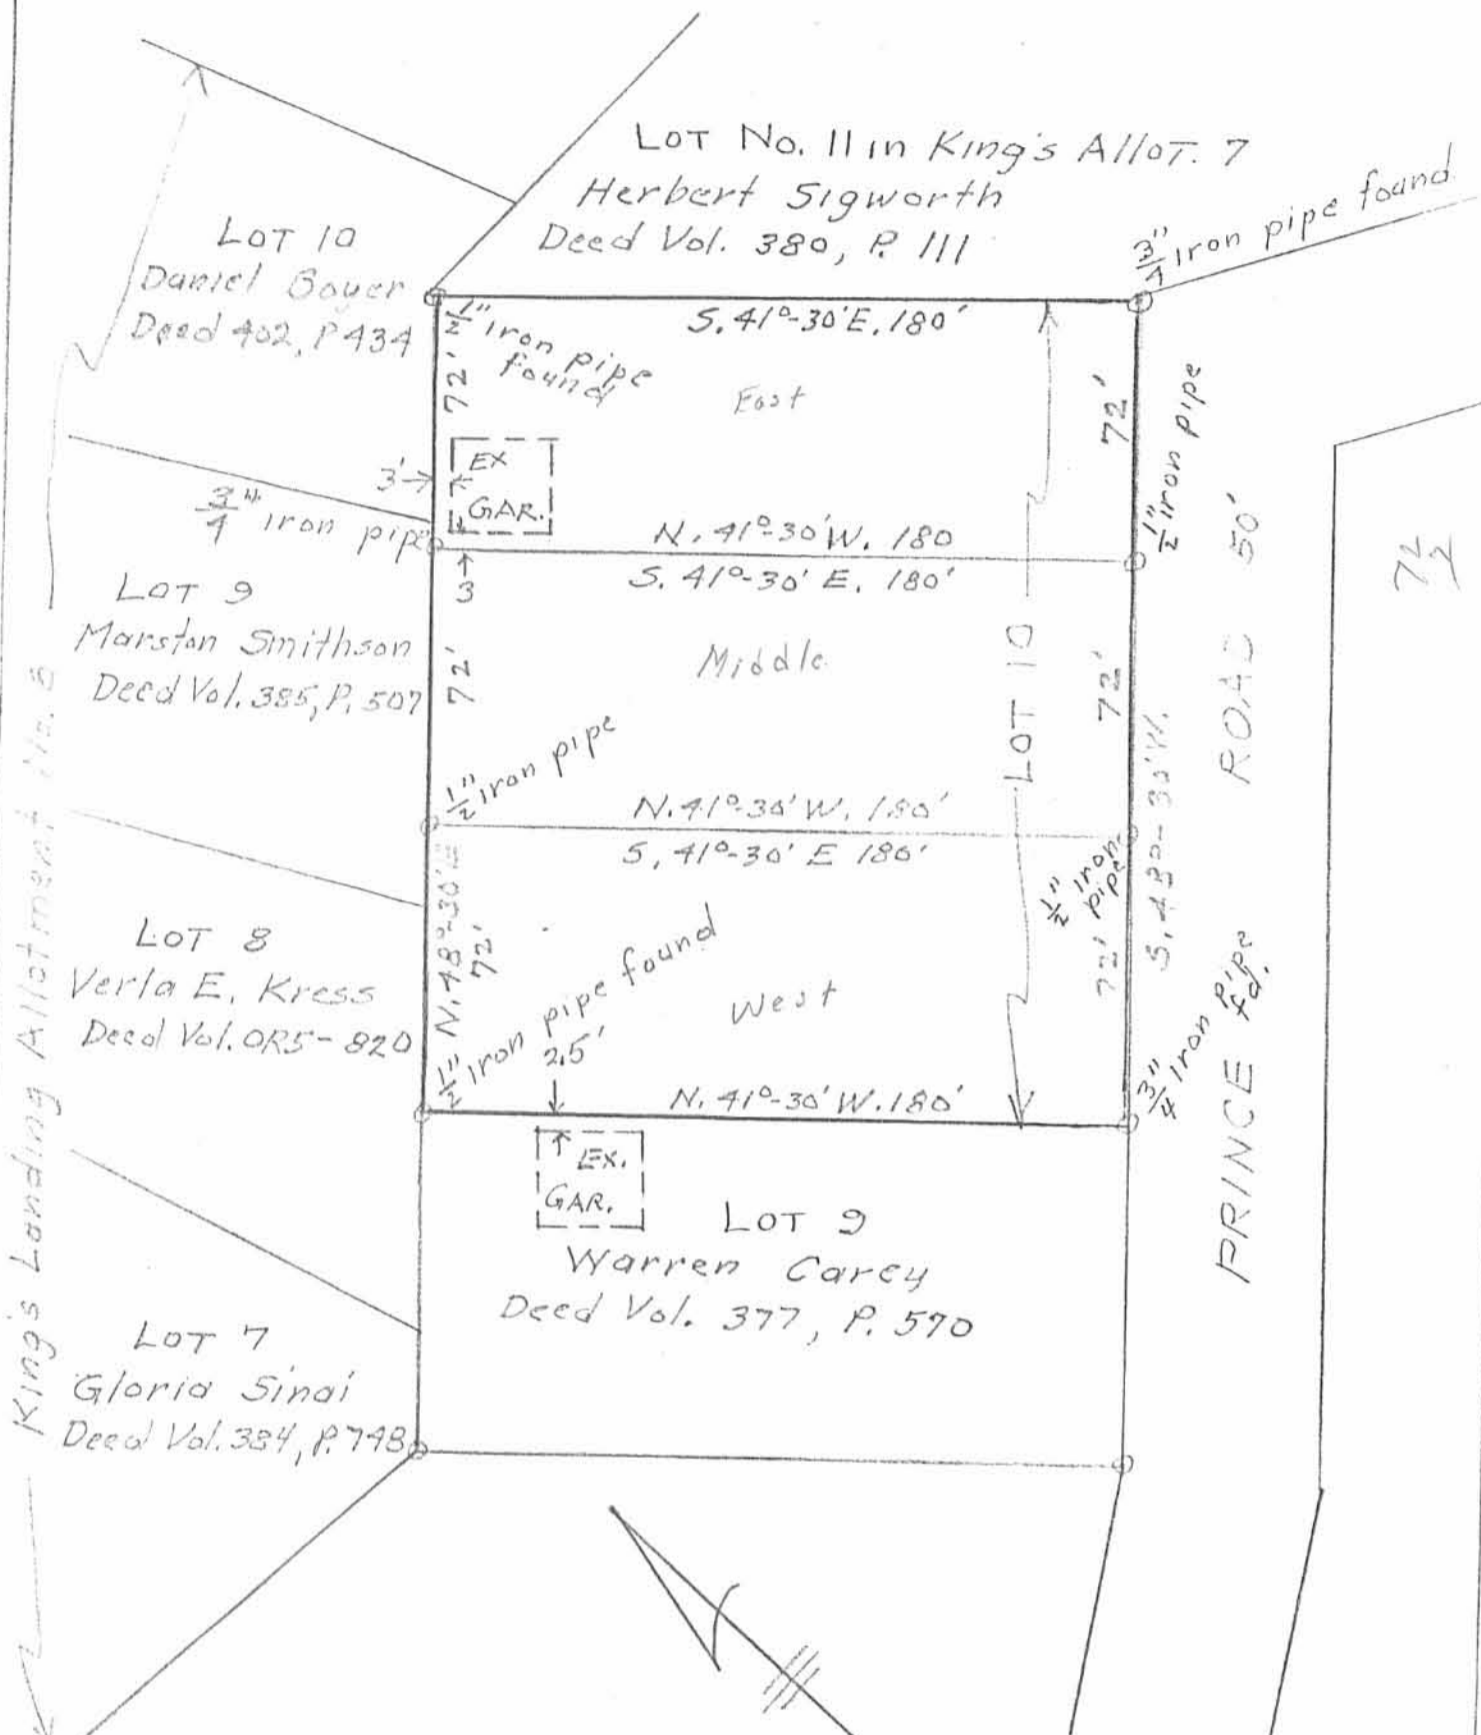 LOT No. 11 in King's Allot. 7
Herbert Sigworth
Deed Vol. 380, P. 111
3/4" Iron pipe found
LOT 10
Daniel Boyer
Deed 402, P 434
1/2" Iron pipe
found
S. 41°-30' E. 180'
72'
East
72'
1/2" iron pipe
EX
GAR.
3'
3/4" Iron pipe
N. 41°-30' W. 180
S. 41°-30' E. 180'
3
LOT 9
Marston Smithson
Deed Vol. 385, P. 507
72'
Middle
LOT 10
72'
ROAD 50'
1/2" iron pipe
N. 41°-30' W. 180'
S. 41°-30' E 180'
1/2" iron
pipe
S. 48°-30' W.
LOT 8
Verla E. Kress
Deed Vol. OR5-820
N. 48°-30' E
72'
1/2" Iron pipe found
West
72'
3/4" Iron pipe
fd.
2.5'
N. 41°-30' W. 180'
PRINCE
EX.
GAR.
LOT 9
Warren Carey
Deed Vol. 377, P. 570
LOT 7
Gloria Sinai
Deed Vol. 384, P. 748
King's Landing Allotment No.